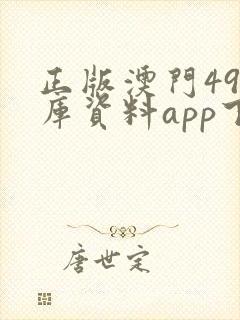 正版澳門49
庫資料app下
唐世定